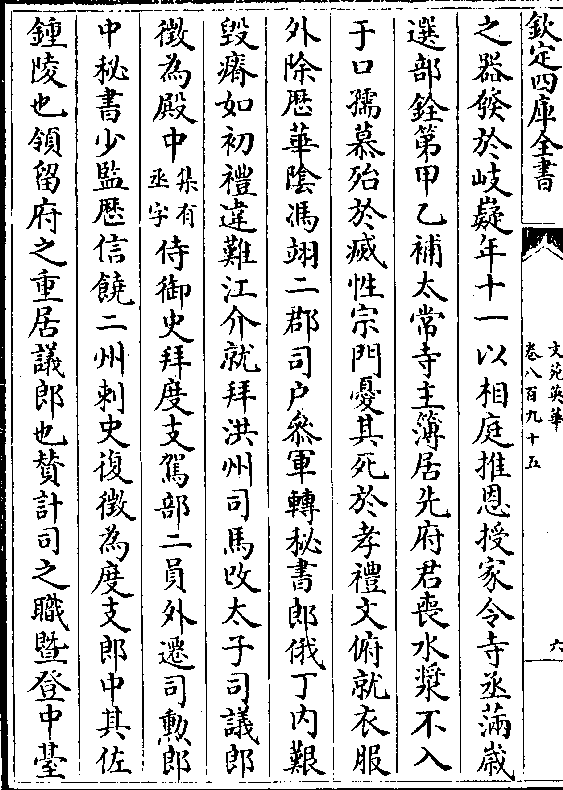 欽定四庫全書
文苑英華
卷八百九十五
六
之器發於岐嶷年十一以相庭推恩授家令寺丞滿歲
選部銓第甲乙補太常寺主簿居先府君喪水漿不入
于口孺慕殆於滅性宗門憂其死於孝禮文俯就衣服
外除歴華陰馮翊二郡司户叅軍轉秘書郎俄丁内艱
毀瘠如初禮違難江介就拜洪州司馬改太子司議郎
徵為殿中集有丞字侍御史拜度支駕部二員外遷司勲郎
中秘書少監歴信饒二州刺史復徵為度支郎中其佐
鍾陵也領留府之重居議郎也賛計司之職暨登中臺